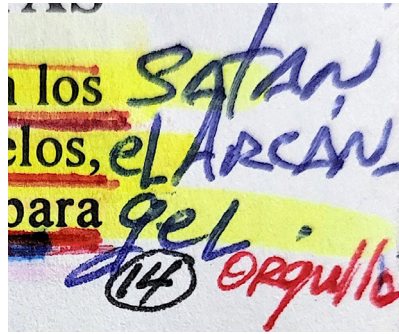 AS
n los SATAN,
elos, el ARCÁN-
para gel.
14 ORgullo